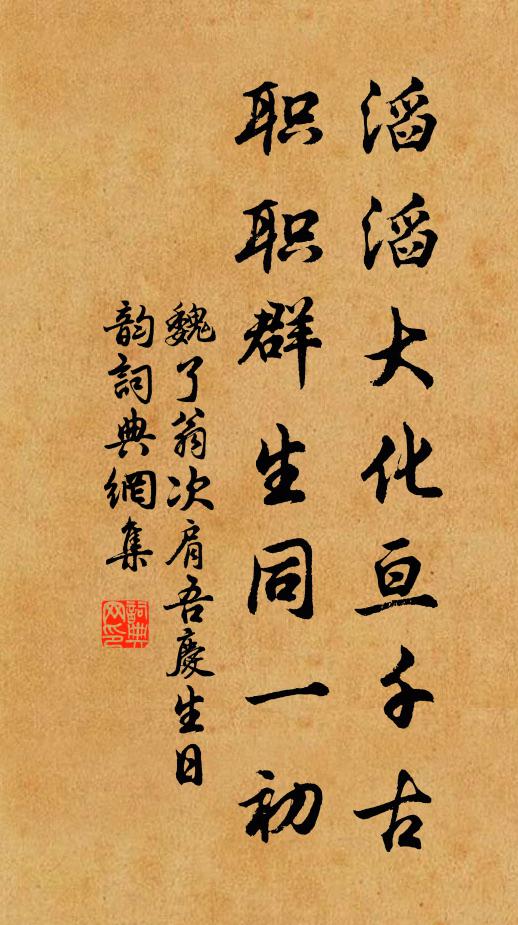 滔滔大化亘千古
职职群生同一初
魏了翁次肩吾慶生日
韵詞典網集
詞典網印